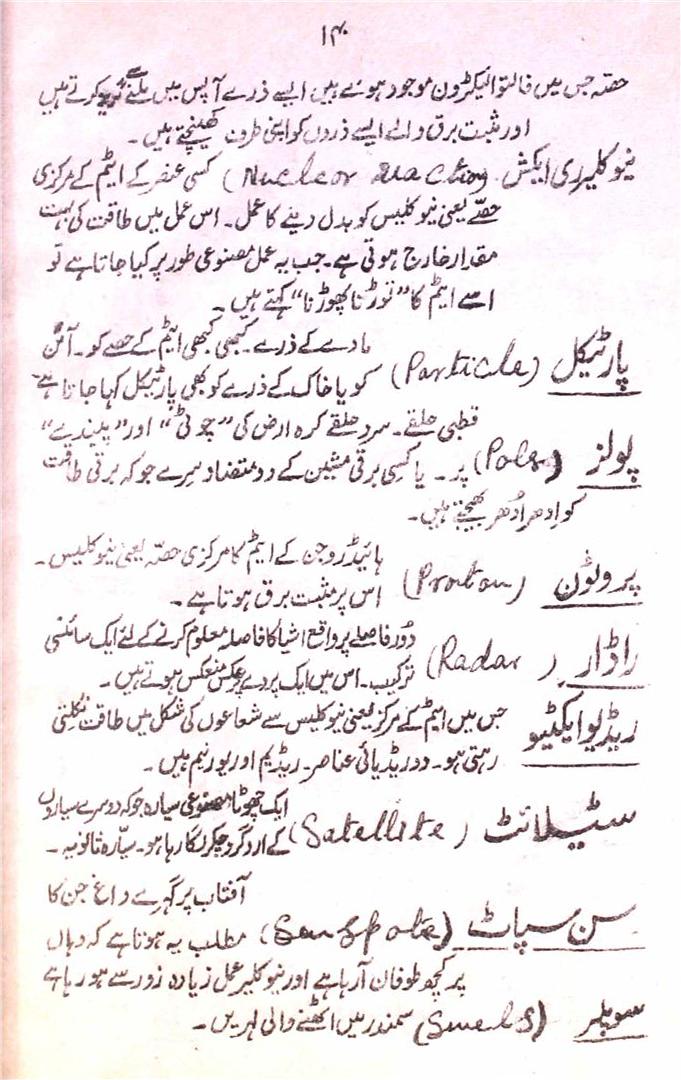 ۱۴۰
حصہ جس میں فالتو الیکٹرون موجود ہوتے ہیں ایسے ذرے آپس میں ملنے سے گریز کرتے ہیں
اور مثبت برق والے ایسے ذروں کو اپنی طرف کھینچتے ہیں۔
نیوکلیرری ایکشن (Nuclear reaction) کسی عنصر کے ایٹم کے مرکزی
حصّے یعنی نیوکلیس کو بدل دینے کا عمل۔ اس عمل میں طاقت کی بہت
مقدار خارج ہوتی ہے۔ جب یہ عمل مصنوعی طور پر کیا جاتا ہے تو
اسے ایٹم کا "توڑنا پھوڑنا" کہتے ہیں۔
پارٹیکل (Particle) مادے کے ذرے۔ کبھی کبھی ایٹم کے حصے کو۔ آئن
کو یا خاک کے ذرے کو بھی پارٹیکل کہا جاتا ہے۔
پولز (Poles) قطبی حلقے۔ سرد حلقے کرہ ارض کی "چوٹی" اور "پیندے"
پر۔ یا کسی برقی مشین کے دو متضاد سرے جو کہ برقی طاقت
کو اِدھر اُدھر بھیجتے ہیں۔
پروٹون (Proton) ہائیڈروجن کے ایٹم کا مرکزی حصّہ یعنی نیوکلیس۔
اس پر مثبت برق ہوتا ہے۔
راڈار (Radar) دُور فاصلے پر واقع اشیا کا فاصلہ معلوم کرنے کے لئے ایک سائنسی
ترکیب۔ اس میں ایک پردے پر عکس منعکس ہوتے ہیں۔
ریڈیو ایکٹیو جس میں ایٹم کے مرکز یعنی نیوکلیس سے شعاعوں کی شکل میں طاقت نکلتی
رہتی ہو۔ دو ریڈیائی عناصر۔ ریڈیم اور یورنیم ہیں۔
سٹیلائٹ (Satellite) ایک چھوٹا مصنوعی سیارہ جو کہ دوسرے سیاروں
کے اردگرد چکر لگا رہا ہو۔ سیّارہ ثانویہ۔
آفتاب پر گہرے داغ جن کا
سن سپاٹ (Sun Spots) مطلب یہ ہوتا ہے کہ وہاں
پر کچھ طوفان آ رہا ہے اور نیوکلیر عمل زیادہ زور سے ہو رہا ہے
سویلز (Swells) سمندر میں اٹھنے والی لہریں۔